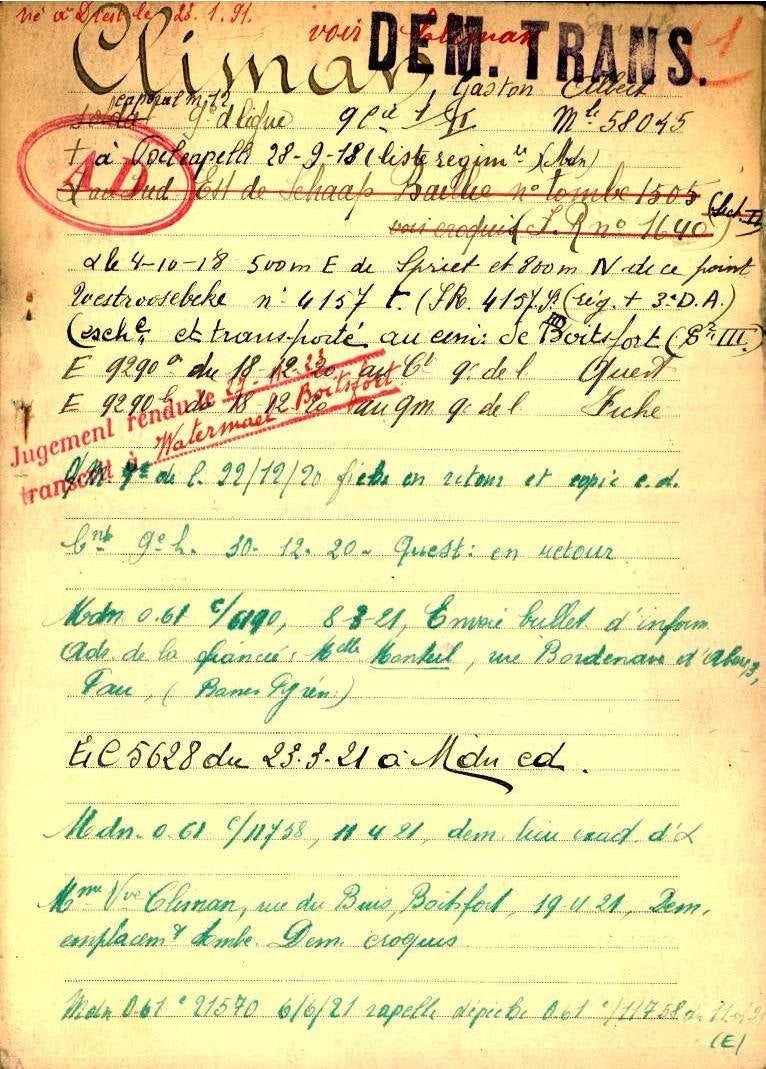 né à Diest le 23.1.91.
voir Soliman
DEM. TRANS.
1
Climan, Gaston Albert
caporal m.12
soldat 9e de ligne 9 Cie 1/II Mle 58045
AD
+ à Poelcapelle 28-9-18 (liste régimre) (Mdn)
au Sud Est de Schaap Baillie n° tombe 1505 (Sect. II)
voir croquis (S.R n° 1640)
le 4-10-18 500m E de Spriet et 800m N de ce point
Westroosebeke n° 4157 t. (SR. 4157 (rég. + 3e D.A.)
(exhé et transporté au cim: de Boitsfort (III)
E 9290 a du 18-12-20 au Ct 9e de l Quest
E 9290 b du 18 12 20 au qm 9e de l Fiche
Jugement rendu le
transcrit à Watermael-Boitsfort
Q/M 9e de l. 22/12/20 fiche en retour et copie c.d.
Cnt 9e l. 30-12-20- Quest: en retour
Mdn 0.61 c/6190, 8-3-21, Envoie bullet d'inform
Adr. de la fiancée: Melle Monteil, rue Bordenave d'Abère, 3,
Pau, (Basses Pyrén.)
E.C 5628 du 23.3-21 à Mdn cd.
Mdn. 0.61 c/11758, 11 4 21, dem. lieu exact d'
Mme Vve Climan, rue du Buis, Boitsfort, 19 4 21, Dem.
emplacemt tombe. Dem. croquis
Mdn 0.61 c 21570 6/6/21 rapelle dépêche 0.61 c/11758 du
(E)